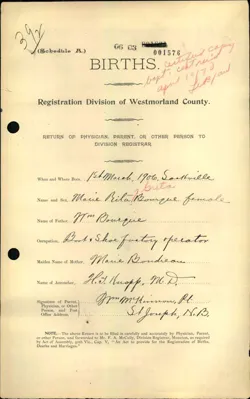 392
(Schedule A.)
001576
certified copy
sept.
april 1973
BIRTHS.
Registration Division of Westmorland County.
RETURN OF PHYSICIAN, PARENT, OR OTHER PERSON TO
DIVISION REGISTRAR.
When and Where Born, 1st March, 1906, Sackville
Berta
Name and Sex, Marie Bourque female
Name of Father, Wm Bourque
Occupation, Boot & Shoe factory operator
Maiden Name of Mother, Marie Boudreau
Name of Attendant, H.T. Knapp, M.D.
Signature of Parent,
Physician, or Other
Person, and Post
Office Address.
Wm McKinnon, Pt.
St Joseph, N.B.
NOTE. — The above Return is to be filled in carefully and accurately by Physician, Parent,
or other Person, and forwarded to Mr. F. A. McCully, Division Registrar, Moncton, as required
by Act of Assembly, 50th Vic., Cap. V, "An Act to provide for the Registration of Births,
Deaths and Marriages."